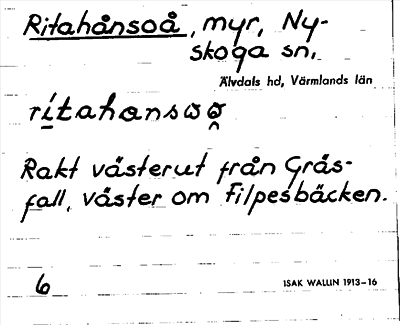 Ritahånsoå, myr, Ny-
skoga sn,
Älvdals hd, Värmlands län
Rakt västerut från Gräs-
fall, väster om Filpesbäcken.
6
ISAK WALLIN 1913–16